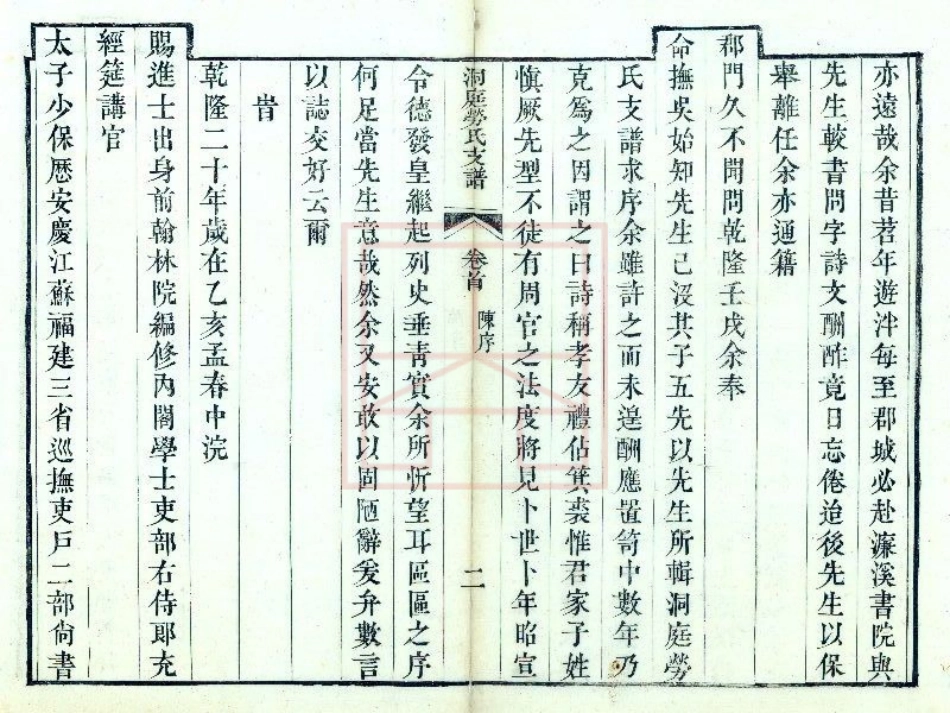 亦遠哉余昔苕年遊泮每至郡城必赴濂溪書院與
先生較書問字詩文酬酢竟日忘倦迨後先生以保
舉離任余亦通籍
郡門久不聞問乾隆壬戌余奉
命撫吳始知先生已沒其子五先以先生所輯洞庭勞
氏支譜求序余雖許之而未遑酬應置笥中數年乃
克為之因謂之曰詩稱孝友禮佔箕裘惟君家子姓
慎厥先型不徒有周官之法度將見卜世卜年昭宣
洞庭勞氏支譜
卷首
陳序
二
令德發皇繼起列史垂靑實余所忻望耳區區之序
何足當先生意哉然余又安敢以固陋辭爰弁數言
以誌交好云爾
旹
乾隆二十年歲在乙亥孟春中浣
賜進士出身前翰林院編修內閣學士吏部右侍郎充
經筵講官
太子少保歷安慶江蘇福建三省巡撫吏戶二部尙書